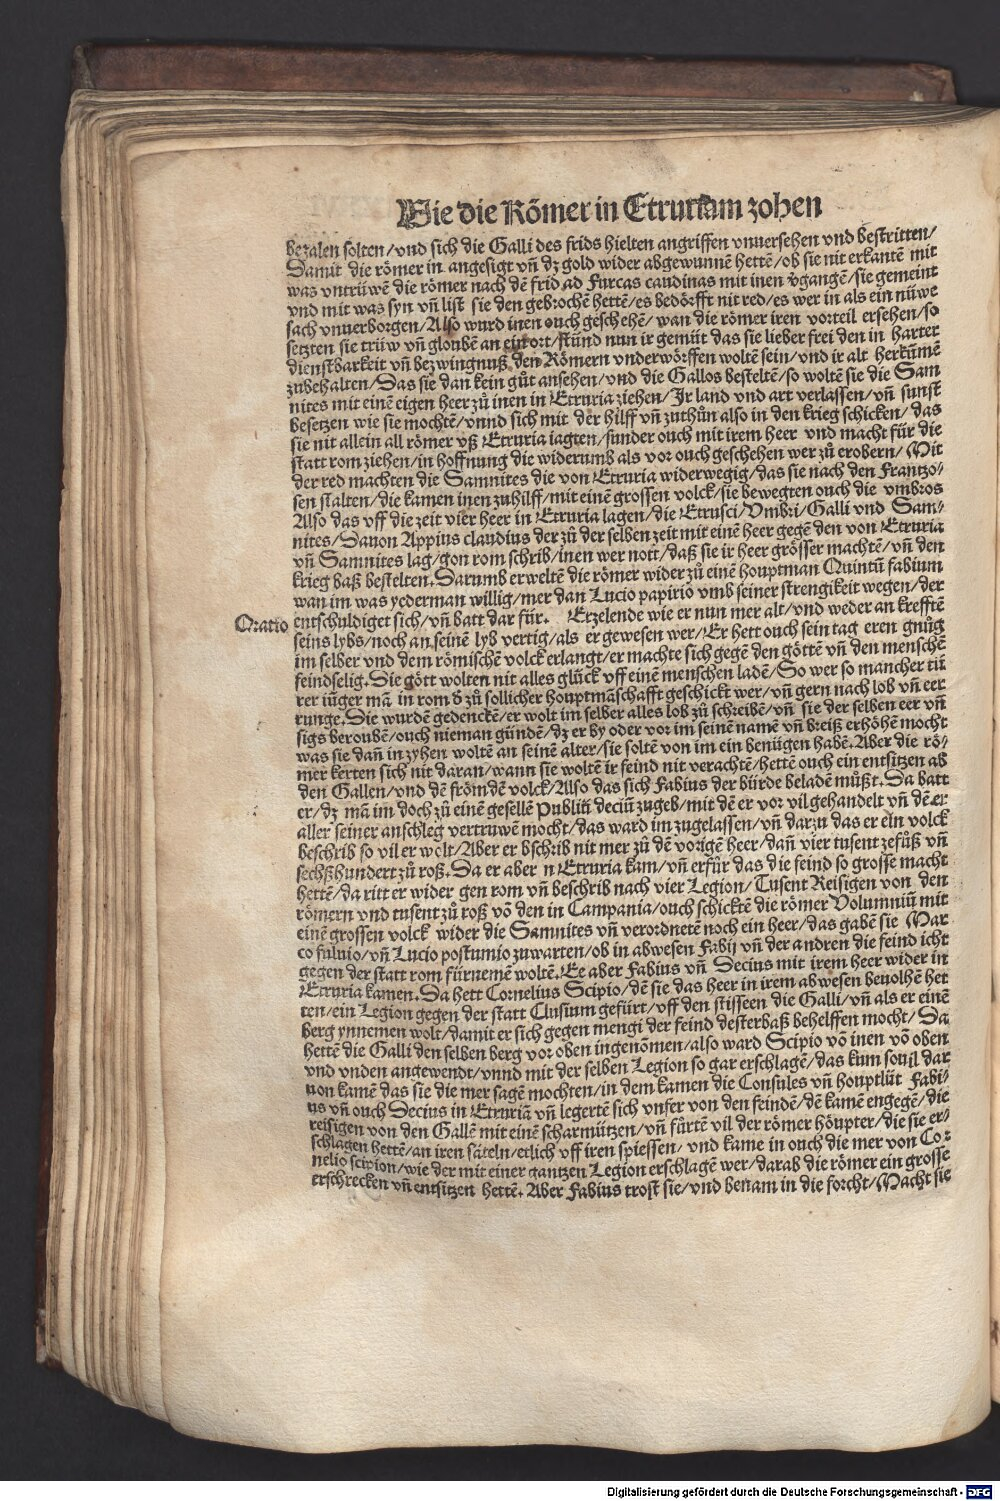 Wie die Römer in Etruriam zohen
bezalen solten/vnd sich die Galli des frids hielten angriffen vnuersehen vnd bestritten/
Damit die römer in angesigt vñ dz gold wider abgewunnē hettē/ob sie nit erkantē mit
was vntrüwē die römer nach dē frid ad Furcas caudinas mit inen vgangē/sie gemeint
vnd mit was syn vñ list sie den gebrochē hettē/es bedörfft nit red/es wer in als ein nüwe
sach vnuerborgen/Also wurd inen ouch geschehē/wan die römer iren vorteil ersehen/so
setzten sie trüw vñ gloubē an ein ort/stünd nun ir gemüt das sie lieber frei den in harter
dienstbarkeit vñ bezwingnuß den Römern vnderworffen woltē sein/vnd ir alt herkūmē
zubehalten/Das sie dan kein gůt ansehen/vnd die Gallos besteltē/so woltē sie die Sam
nites mit einē eigen heer zů inen in Etruria ziehen/Ir land vnd art verlassen/vñ sunst
besetzen wie sie mochtē/vnnd sich mit der hilff vñ zuthůn also in den krieg schicken/das
sie nit allein all römer vß Etruria iagten/sunder ouch mit irem heer vnd macht für die
statt rom ziehen/in hoffnung die widerumb als vor ouch geschehen wer zů erobern/Mit
der red machten die Samnites die von Etruria widerwegig/das sie nach den Frantzo/
sen stalten/die kamen inen zuhilff/mit einē grossen volck/sie bewegten ouch die vmbros
Also das vff die zeit vier heer in Etruria lagen/die Etrusci/Vmbri/Galli vnd Sam/
nites/Dauon Appius claudius der zů der selben zeit mit einē heer gegē den von Etruria
vñ Samnites lag/gon rom schrib/inen wer nott/daß sie ir heer grösser machtē/vñ den
krieg baß bestelten. Darumb erweltē die römer wider zů einē houptman Quintū fabium
wan im was yederman willig/mer dan Lucio papirio vmb seiner strengikeit wegen/der
Oratio entschuldiget sich/vñ batt dar für. Erzelende wie er nun mer alt/vnd weder an krefftē
seins lybs/noch an seinē lyb vertig/als er gewesen wer/Er hett ouch sein tag eren gnůg
im selber vnd dem römischē volck erlangt/er machte sich gegē den göttē vñ den menschē
feindselig. Die gött wolten nit alles glück vff einē menschen ladē/So wer so mancher tü
rer iūger mā in rom d zů sollicher houptmāschafft geschickt wer/vñ gern nach lob vñ eer
runge. Die wurdē gedenckē/er wolt im selber alles lob zů schreibē/vñ sie der selben eer vñ
sigs beroubē/ouch nieman gündē/dz er by oder vor im seinē namē vñ breiß erhöhē mocht
was sie dañ in zyhen woltē an seinē alter/sie soltē von im ein benügen habē. Aber die rö/
mer kerten sich nit daran/wann sie woltē ir feind nit verachtē/hettē ouch ein entsitzen ab
den Gallen/vnd dē frömdē volck/Also das sich Fabius der bürde beladē můßt. Da batt
er/dz mā im doch zů einē gesellē Publiū deciū zugeb/mit dē er vor vil gehandelt vñ dē er
aller seiner anschleg vertruwē mocht/das ward im zugelassen/vñ darzu das er ein volck
beschrib so vil er wolt/Aber er bschrib nit mer zů dē vorigē heer/dañ vier tusent zefůß vñ
sechßhundert zů roß. Da er aber n Etruria kam/vñ erfůr das die feind so grosse macht
hettē/da ritt er wider gen rom vñ beschrib nach vier Legion/Tusent Reisigen von den
römern vnd tusent zů roß vō den in Campania/ouch schicktē die römer Volumniū mit
einē grossen volck wider die Samnites vñ verordnetē noch ein heer/das gabē sie Mar
co fuluio/vñ Lucio postumio zuwarten/ob in abwesen Fabij vñ der andren die feind icht
gegen der statt rom fürnemē woltē. Ee aber Fabius vñ Decius mit irem heer wider in
Etruria kamen. Da hett Cornelius Scipio/dē sie das heer in irem abwesen beuolhē het
ten/ein Legion gegen der statt Clusium gefürt/vff den stiessen die Galli/vñ als er einē
berg ynnemen wolt/damit er sich gegen mengi der feind desterbaß behelffen mocht/Da
hettē die Galli den selben berg vor oben ingenōmen/also ward Scipio vō inen vō oben
vnd vnden angewendt/vnnd mit der selben Legion so gar erschlagē/das kum souil dar
uon kamē das sie die mer sagē mochten/in dem kamen die Consules vñ houptlüt Fabi/
us vñ ouch Decius in Etruriā vñ legertē sich vnfer von den feindē/dē kamē engegē/die
reisigen von den Gallē mit einē scharmützen/vñ fůrtē vil der römer höupter/die sie er/
schlagen hettē/an iren säteln/etlich vff iren spiessen/vnd kame in ouch die mer von Cor
nelio scipion/wie der mit einer gantzen Legion erschlagē wer/darab die römer ein grosse
erschrecken vñ entsitzen hettē. Aber Fabius trost sie/vnd benam in die forcht/Macht sie
Digitalisierung gefördert durch die Deutsche Forschungsgemeinschaft - DFG